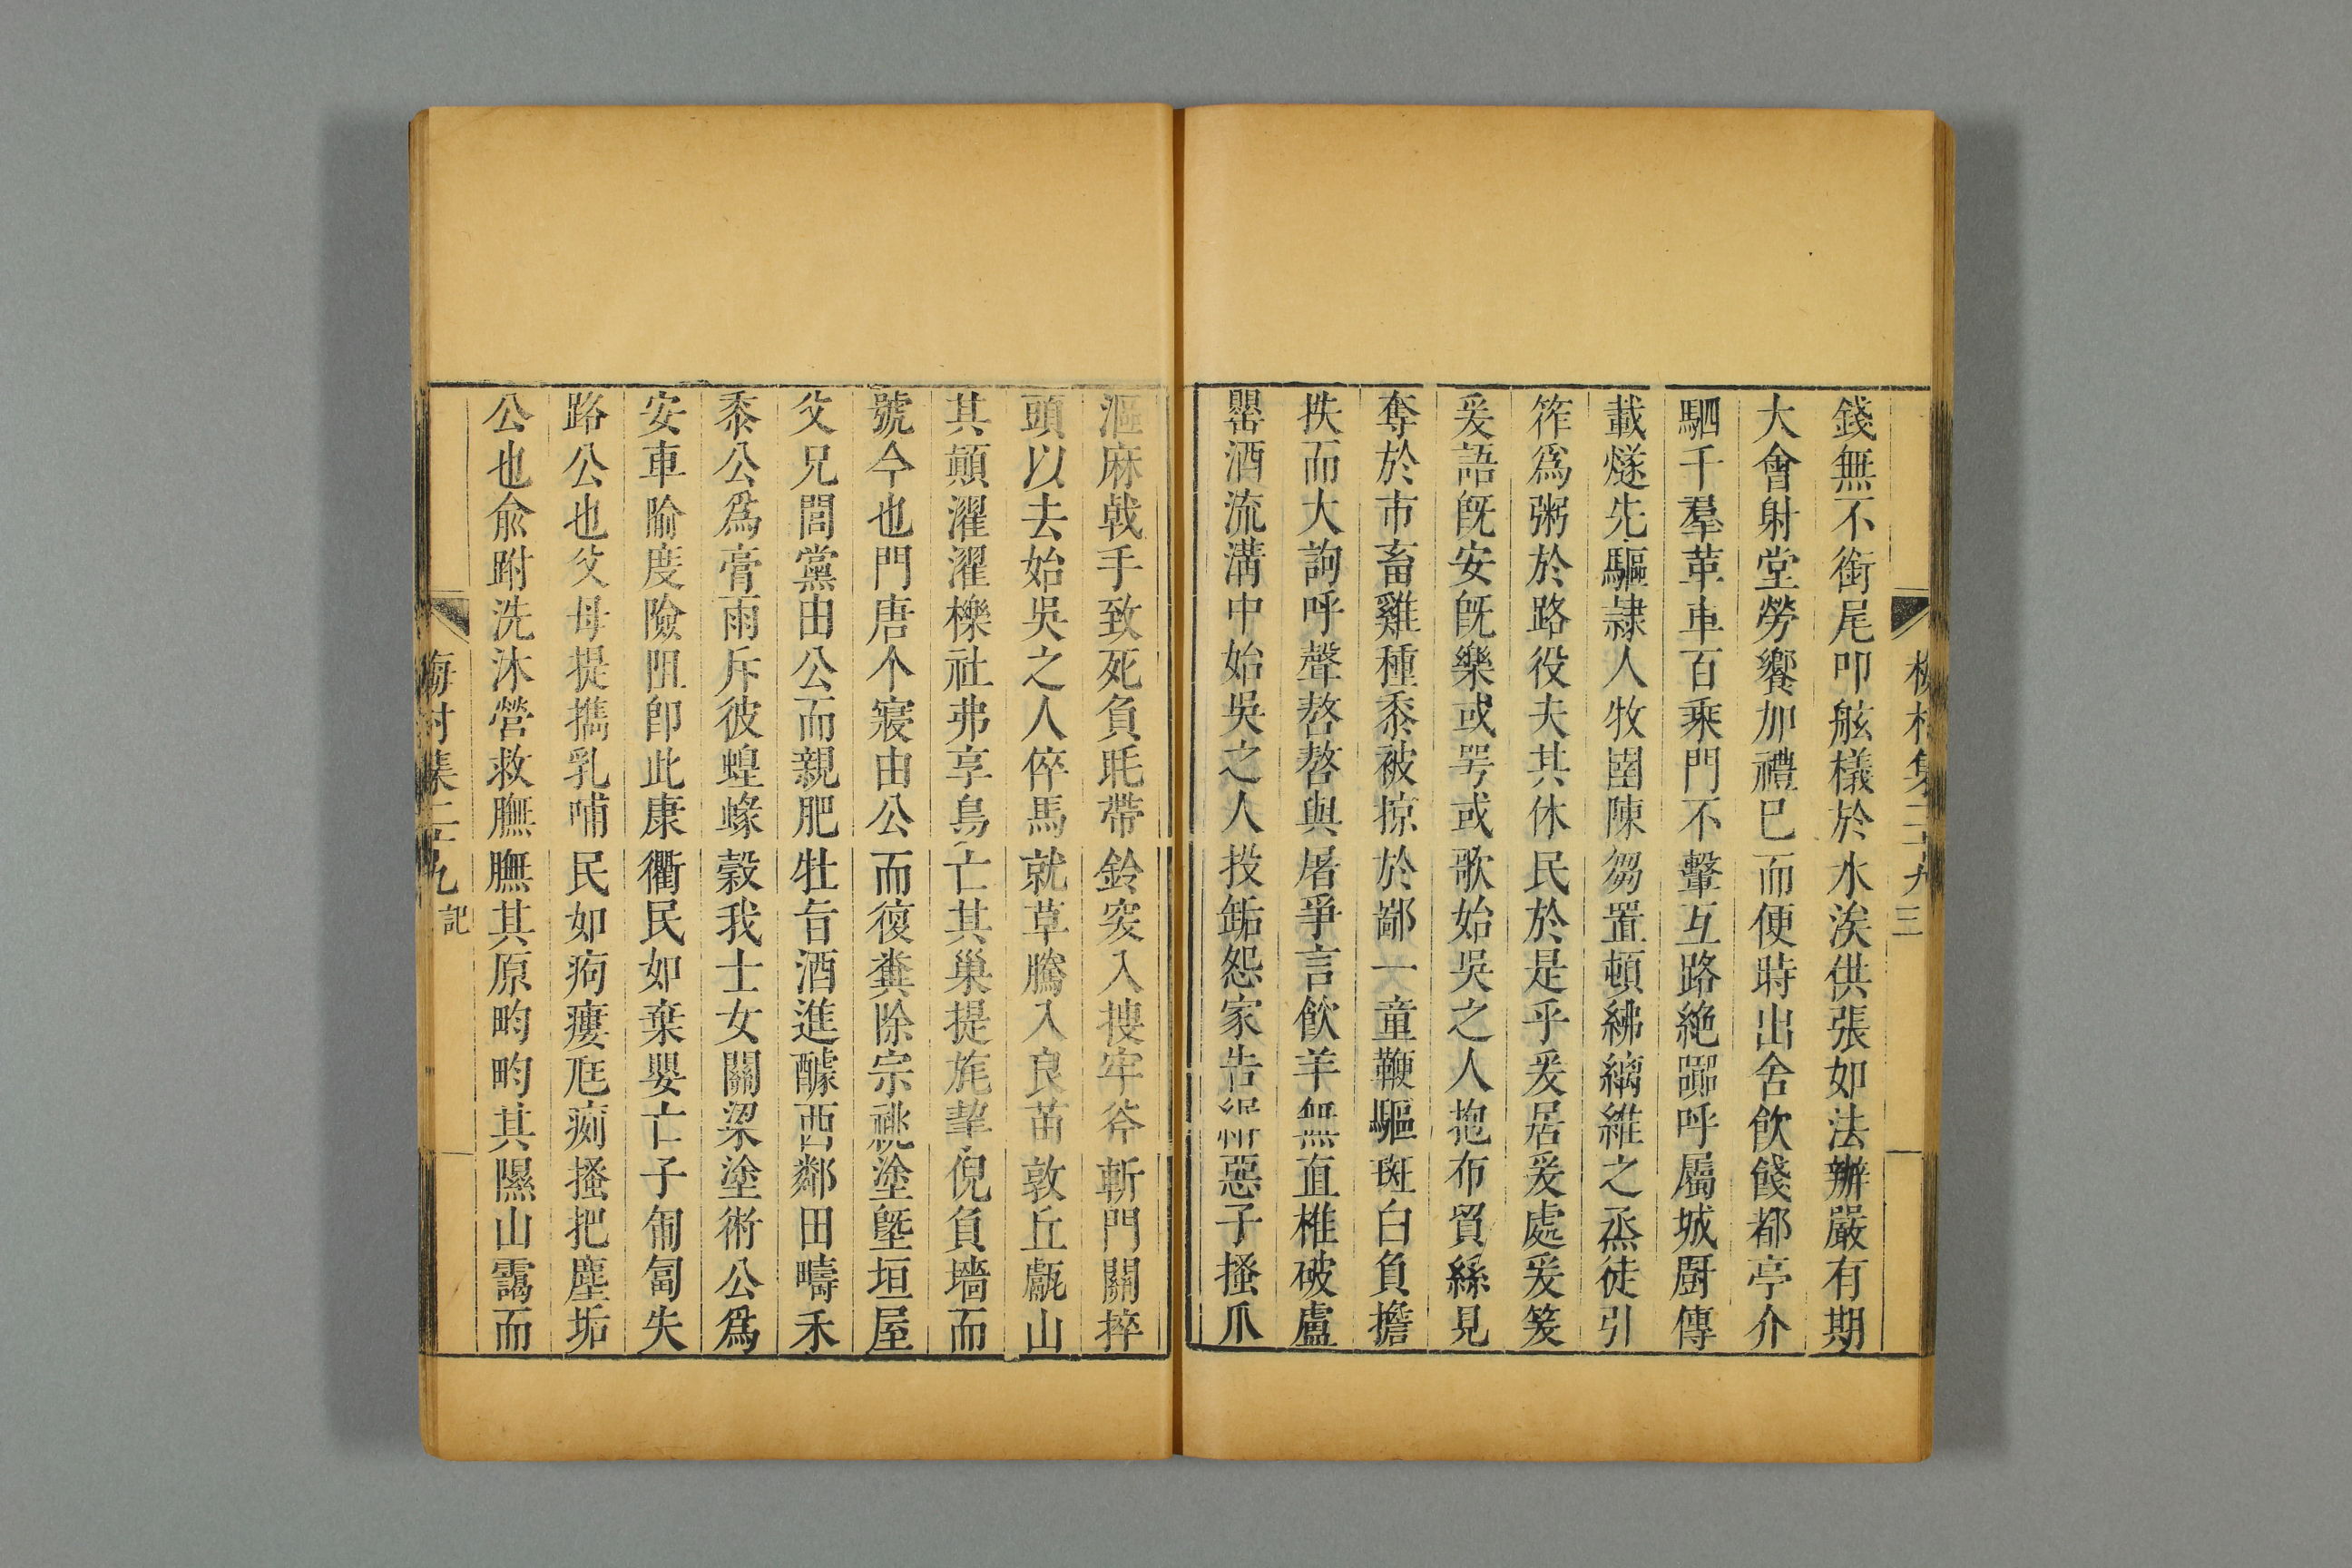 梅村集二十九 三
錢無不銜尾叩舷檥於水涘供張如法辦嚴有期
大會射堂勞饗加禮已而便時出舍飲餞都亭介
駟千羣革車百乘門不擊互路絶躑呼屬城厨傳
載燧先驅隷人牧圉陳芻置頓紼纚維之烝徒引
筰爲粥於路役夫其休民於是乎爰居爰處爰笑
爰語旣安旣樂或咢或歌始吳之人抱布貿絲見
奪於市畜雞種黍被掠於鄙一童鞭驅斑白負擔
抶而大詢呼聲嗸嗸與屠爭言飲羊無直椎破盧
罌酒流溝中始吳之人投缿怨家告惡子搔爪
漚麻戟手致死負毦帶鈴突入搜牢斧斬門關捽
頭以去始吳之人倅馬就草騰入良苗敦丘甗山
其顛濯濯櫟社弗享鳥亡其巢提旄挈倪負墻而
號今也門唐个寢由公而復糞除宗祧塗塈垣屋
父兄閭黨由公而親肥牡旨酒進醵西鄰田疇禾
黍公爲膏雨斥彼蝗蝝穀我士女關梁塗術公爲
安車隃度險阻卽此康衢民如棄嬰亡子匍匐失
路公也父母提擕乳哺民如痀瘻尫痾搔把塵垢
公也俞跗洗沐營救膴膴其原畇畇其隰山靄而
梅村集二十九 記